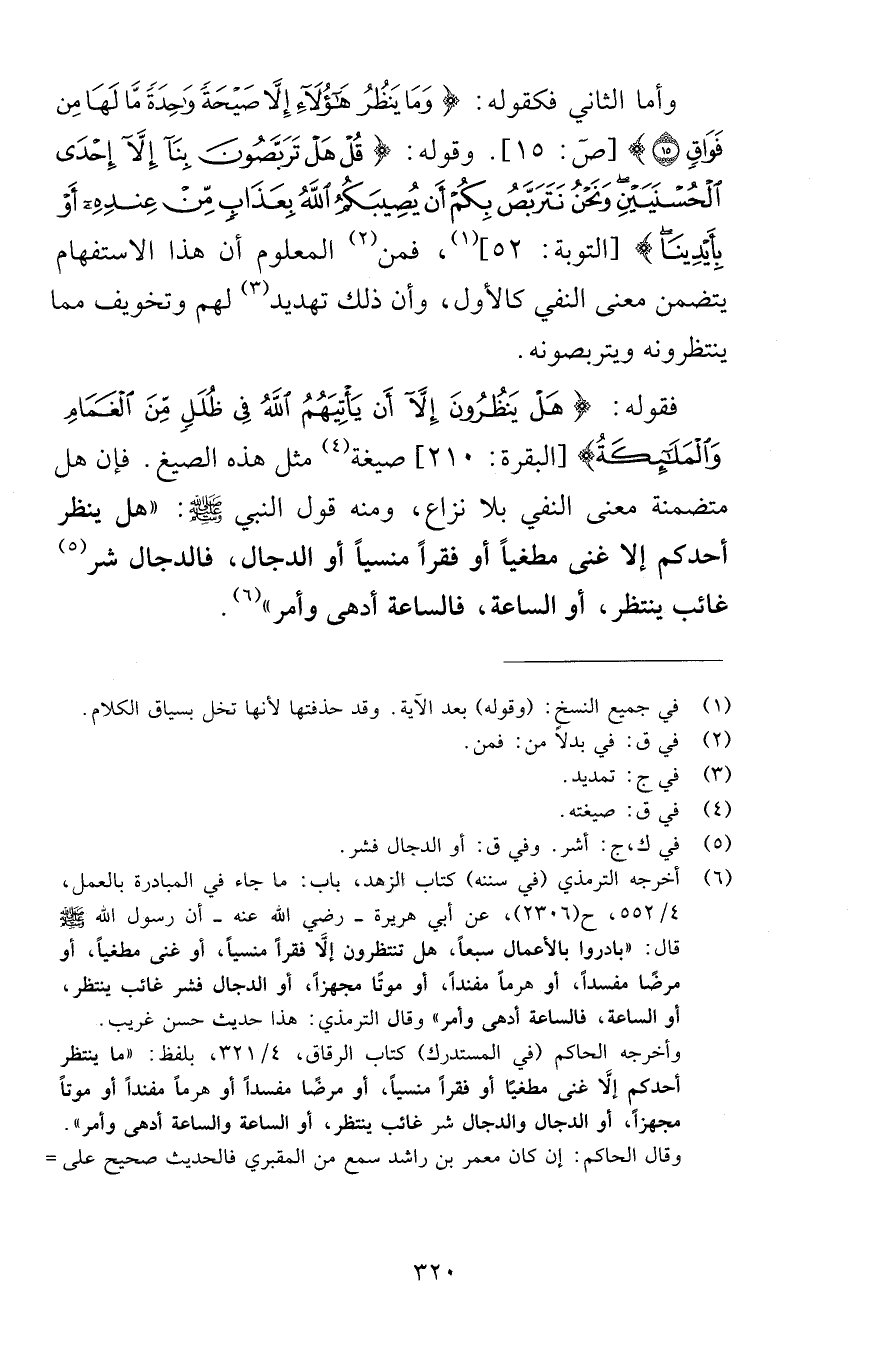 وأما الثاني فكقوله: ﴿ وَمَا يَنظُرُ هَٰٓؤُلَآءِ إِلَّا صَيْحَةً وَٰحِدَةً مَّا لَهَا مِن
فَوَاقٍ ١٥ ﴾ [صۤ: ١٥]. وقوله: ﴿ قُلْ هَلْ تَرَبَّصُونَ بِنَآ إِلَّآ إِحْدَى
ٱلْحُسْنَيَيْنِ ۖ وَنَحْنُ نَتَرَبَّصُ بِكُمْ أَن يُصِيبَكُمُ ٱللَّهُ بِعَذَابٍ مِّنْ عِندِهِۦٓ أَوْ
بِأَيْدِينَا ۖ ﴾ [التوبة: ٥٢](١)، فمن(٢) المعلوم أن هذا الاستفهام
يتضمن معنى النفي كالأول، وأن ذلك تهديد(٣) لهم وتخويف مما
ينتظرونه ويتربصونه.
فقوله: ﴿ هَلْ يَنظُرُونَ إِلَّآ أَن يَأْتِيَهُمُ ٱللَّهُ فِى ظُلَلٍ مِّنَ ٱلْغَمَامِ
وَٱلْمَلَٰٓئِكَةُ ﴾ [البقرة: ٢١٠] صيغة(٤) مثل هذه الصيغ. فإن هل
متضمنة معنى النفي بلا نزاع، ومنه قول النبي ﷺ: «هل ينظر
أحدكم إلا غنى مطغياً أو فقراً منسياً أو الدجال، فالدجال شر(٥)
غائب ينتظر، أو الساعة، فالساعة أدهى وأمر»(٦).
(١) في جميع النسخ: (وقوله) بعد الآية. وقد حذفتها لأنها تخل بسياق الكلام.
(٢) في ق: في بدلاً من: فمن.
(٣) في ج: تمديد.
(٤) في ق: صيغته.
(٥) في ك،ج: أشر. وفي ق: أو الدجال فشر.
(٦) أخرجه الترمذي (في سننه) كتاب الزهد، باب: ما جاء في المبادرة بالعمل،
٤/ ٥٥٢، ح(٢٣٠٦)، عن أبي هريرة ـ رضي الله عنه ـ أن رسول الله ﷺ
قال: «بادروا بالأعمال سبعاً، هل تنتظرون إلَّا فقراً منسياً، أو غنى مطغياً، أو
مرضًا مفسداً، أو هرماً مفنداً، أو موتًا مجهزاً، أو الدجال فشر غائب ينتظر،
أو الساعة، فالساعة أدهى وأمر» وقال الترمذي: هذا حديث حسن غريب.
وأخرجه الحاكم (في المستدرك) كتاب الرقاق، ٤/ ٣٢١، بلفظ: «ما ينتظر
أحدكم إلَّا غنى مطغيًا أو فقراً منسياً، أو مرضًا مفسداً أو هرماً مفنداً أو موتاً
مجهزاً، أو الدجال والدجال شر غائب ينتظر، أو الساعة والساعة أدهى وأمر».
وقال الحاكم: إن كان معمر بن راشد سمع من المقبري فالحديث صحيح على =
٣٢٠